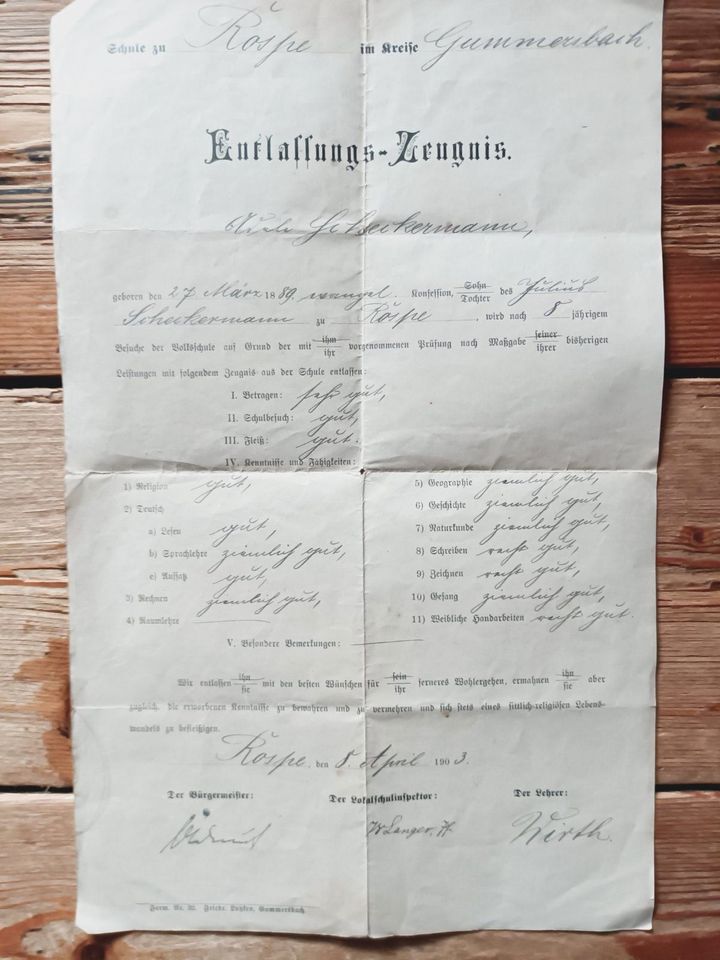 Schule zu Rospe im Kreise Gummersbach.
Entlassungs-Zeugnis.
Adele Scheckermann,
geboren den 27 März 1889, evangel. Konfession, Sohn/Tochter des Julius
Scheckermann zu Rospe, wird nach 8 jährigem
Besuche der Volksschule auf Grund der mit ihm/ihr vorgenommenen Prüfung nach Maßgabe seiner/ihrer bisherigen
Leistungen mit folgendem Zeugnis aus der Schule entlassen:
I. Betragen: sehr gut,
II. Schulbesuch: gut,
III. Fleiß: gut.
IV. Kenntnisse und Fähigkeiten:
1) Religion gut,
2) Deutsch
a) Lesen gut,
b) Sprachlehre ziemlich gut,
c) Aufsatz gut,
3) Rechnen ziemlich gut,
4) Raumlehre
5) Geographie ziemlich gut,
6) Geschichte ziemlich gut,
7) Naturkunde ziemlich gut,
8) Schreiben recht gut,
9) Zeichnen recht gut,
10) Gesang ziemlich gut,
11) Weibliche Handarbeiten recht gut.
V. Besondere Bemerkungen:
Wir entlassen ihn/sie mit den besten Wünschen für sein/ihr ferneres Wohlergehen, ermahnen ihn/sie aber
zugleich, die erworbenen Kenntnisse zu bewahren und zu vermehren und sich stets eines sittlich-religiösen Lebens-
wandels zu befleißigen.
Rospe, den 8. April 1903.
Der Bürgermeister: Der Lokalschulinspektor: Der Lehrer:
Langer, Wirth.
Form. Nr. 32. Friedr. Gummersbach.